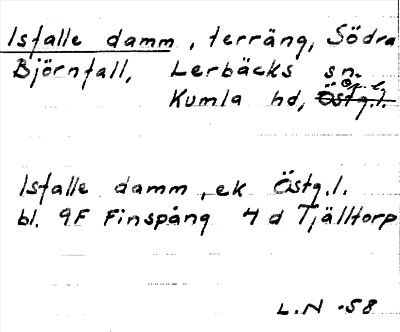 Isfalle damm, terräng, Södra
Björnfall, Lerbäcks sn.
Kumla hd, Ör. l.
Isfalle damm, ek Östg.l.
bl. 9F Finspång 4 d Tjälltorp
L.N -58